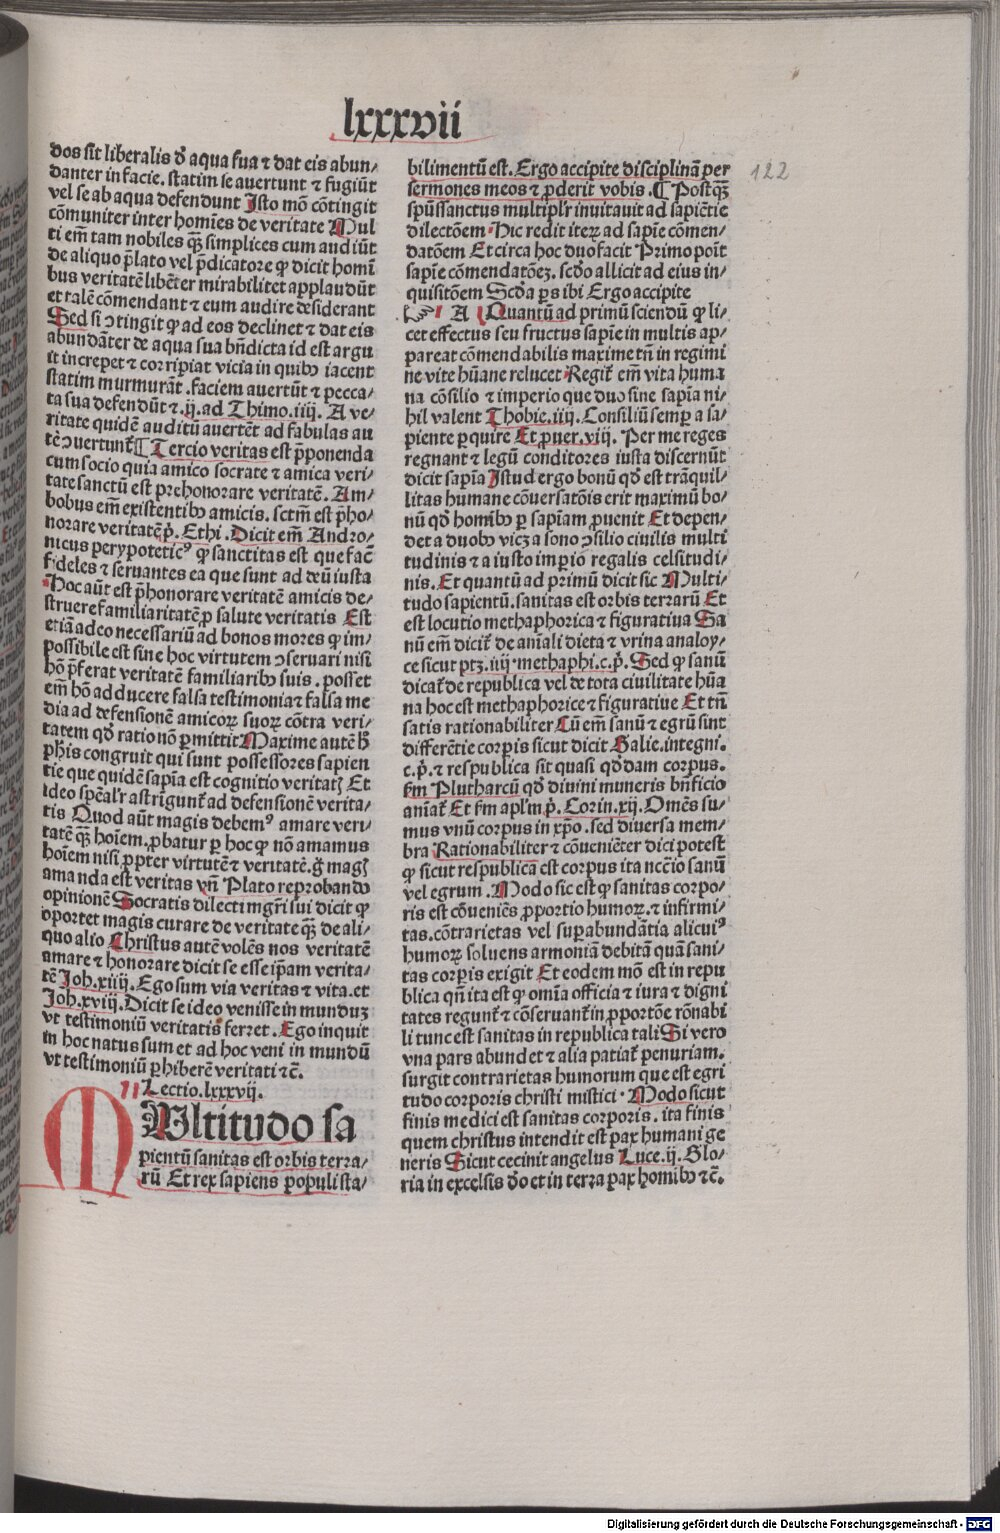 lxxxvii
dos sit liberalis đ aqua sua ⁊ dat eis abun/
danter in facie. statim se avertunt ⁊ fugiūt
vel se ab aqua defendunt Isto mō cōtingit
cōmuniter inter homīes de veritate Mul
ti em̄ tam nobiles qꝫ simplices cum audiūt
de aliquo p̄lato vel p̄dicatore ꝙ dicit homī
bus veritatē libēter mirabilitet applaudūt
et talē cōmendant ⁊ eum audire desiderant
Sed si ɔtingit ꝙ ad eos declinet ⁊ dat eis
abundāter de aqua sua bn̄dicta id est argu
it increpet ⁊ corripiat vicia in quibꝰ iacent
statim murmurāt .faciem auertūt ⁊ pecca/
ta sua defendūt ⁊.ij.ad Thimo.iiij. A ve/
ritate quidē auditū auertēt ad fabulas au
tē ɔuertunt̄ ¶ Tercio veritas est p̄ponenda
cum socio quia amico socrate ⁊ amica veri/
tate sanctū est prehonorare veritatē. Am/
bobus em̄ existentibꝰ amicis. sctm̄ est p̄ho/
norare veritatē p̊. Ethi .Dicit em̄ Andro/
nicus perypoteticꝰ ꝙ sanctitas est que fac̄
fideles ⁊ seruantes ea que sunt ad deū iusta
Hoc aūt est p̄honorare veritatē amicis de/
struere familiaritatē ꝓ salute veritatis Est
etiā adeo necessariū ad bonos mores ꝙ im/
possibile est sine hoc virtutem ɔseruari nisi
hō p̄ferat veritatē familiaribꝰ suis . posset
em̄ hō adducere falsa testimonia ⁊ falsa me
dia ad defensionē amicoꝝ suoꝝ cōtra veri/
tatem qđ ratio nō ꝑmittit Maxime autē h̄
ph̄is congruit qui sunt possessores sapien
tie que quidē sapīa est cognitio veritatꝭ Et
ideo spēalr̄ astrīgunt̄ ad defensionē verita/
tis Quod aūt magis debemꝰ amare veri/
tatē qꝫ hoīem ꝓbatur ꝑ hoc ꝙ nō amamus
hoīem nisi ꝓpter virtutē ⁊ veritatē. ḡ magꝭ
amanda est veritas vn̄ Plato reprobando
opinionē Socratis dilecti mgr̄i sui dicit ꝙ
oportet magis curare de veritate qꝫ de ali/
quo alio Christus autē volēs nos veritatē
amare ⁊ honorare dicit se esse ip̄am verita/
tē Joh.xiiij. Ego sum via veritas ⁊ vita.et
Joh.xviij. Dicit se ideo venisse in munduꝫ
vt testimoniū veritatis ferret . Ego inquit
in hoc natus sum et ad hoc veni in mundū
vt testimoniū ꝑhiberē veritati ⁊c̄.
Lectio.lxxxvij.
MVltitudo sa
pientū sanitas est orbis terra/
rū Et rex sapiens populi sta/
bilimentū est. Ergo accipite disciplinā per
sermones meos ⁊ ꝓderit vobis .¶ Postqꝫ
spūssanctus multiplr̄ inuitauit ad sapiētie
dilectōem Hic redit iteꝝ ad sapīe cōmen/
datōem Et circa hoc duo facit Primo poīt
sapīe cōmendatōeꝫ. scđo allicit ad eius in/
quisitōem Scđa ꝑs ibi Ergo accipite
A Quantū ad primū sciendū ꝙ li/
cet effectus seu fructus sapīe in multis ap/
pareat cōmendabilis maxime tn̄ in regimi
ne vite hūane relucet Regit̄ em̄ vita huma
na cōsilio ⁊ imperio que duo sine sapīa ni/
hil valent Thobie.iiij. Consiliū semꝑ a sa/
piente ꝑquire Et ꝓuer.viij. Per me reges
regnant ⁊ legū conditores iusta discernūt
dicit sapīa Istud ergo bonū qđ est trāquil/
litas humane cōuersatōis erit maximū bo/
nū qđ homībꝰ ꝑ sapīam ꝓuenit Et depen/
det a duobꝰ vicꝫ a sono ɔsilio ciuilis multi
tudinis ⁊ a iusto imꝑio regalis celsitudi/
nis. Et quantū ad primū dicit sic Multi/
tudo sapientū.sanitas est orbis terrarū Et
est locutio methaphorica ⁊ figuratiua Sa
nū em̄ dicit̄ de anīali dieta ⁊ vrina analoy/
ce sicut ptꝫ.iiij.methaphi.c.p̊. Sed ꝙ sanū
dicat̄ de republica vel de tota ciuilitate hūa
na hoc est methaphorice ⁊ figuratiue Et tn̄
satis rationabiliter Cū em̄ sanū ⁊ egrū sint
differētie corꝑis sicut dicit Galie.integni.
c.p̊. ⁊ respublica sit quasi qđdam corpus.
ſm Plutharcū qđ diuini muneris bn̄ficio
aniat̄ Et ſm apl̄m p̊. Corin.xij. Omēs su/
mus vnū corpus in xp̄o .sed diuersa mem/
bra Rationabiliter ⁊ cōueniēter dici potest
ꝙ sicut respublica est corpus ita nccīo sanū
vel egrum .Modo sic est ꝙ sanitas corpo/
ris est cōueniēs ꝓportio humoꝝ.⁊ infirmi/
tas.cōtrarietas vel suꝑabundātia alicuiꝰ
humoꝝ soluens armoniā debitā quā sani/
tas corꝑis exigit Et eodem mō est in repu
blica qn̄ ita est ꝙ omīa officia ⁊ iura ⁊ digni
tates regunt̄ ⁊ cōseruant̄ in ꝓportōe rōnabi
li tunc est sanitas in republica tali Si vero
vna pars abundet ⁊ alia patiat̄ penuriam.
surgit contrarietas humorum que est egri
tudo corporis christi mistici · Modo sicut
finis medici est sanitas corporis . ita finis
quem christus intendit est pax humani ge
neris Sicut cecinit angelus Luce.ij. Glo/
ria in excelsis đo et in terra pax homibꝰ ⁊c̄.
122
Digitalisierung gefördert durch die Deutsche Forschungsgemeinschaft - DFG